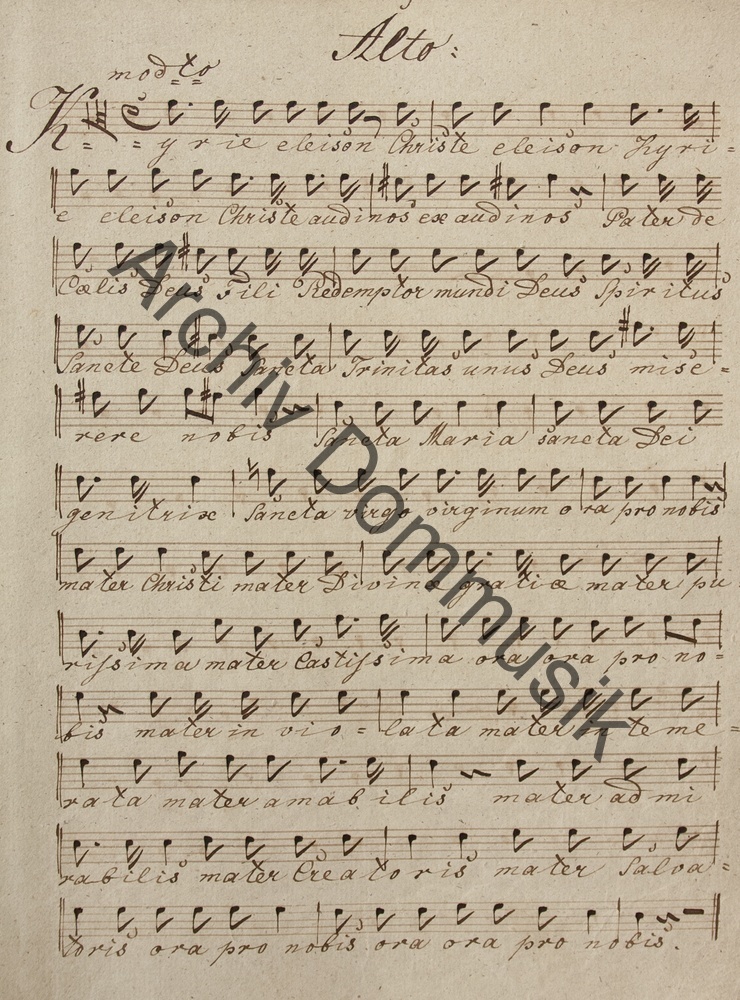 Alto:
modto
K = = yrie eleison Christe eleison Kyri=
e eleison Christe audi nos ex audi nos Pater de
Cœlis Deus Fili Redemptor mundi Deus Spiritus
Sancte Deus Sancta Trinitas unus Deus mise=
rere nobis Sancta Maria sancta Dei
genitrix Sancta virgo virginum ora pro nobis
mater Christi mater Divinæ gratiæ mater pu
rissima mater Castissima ora ora pro no=
bis mater in vio=lata mater in teme=
rata mater amabilis mater admi
rabilis mater Creatoris mater Salva=
toris ora pro nobis ora ora pro nobis.
Archiv Dommusik